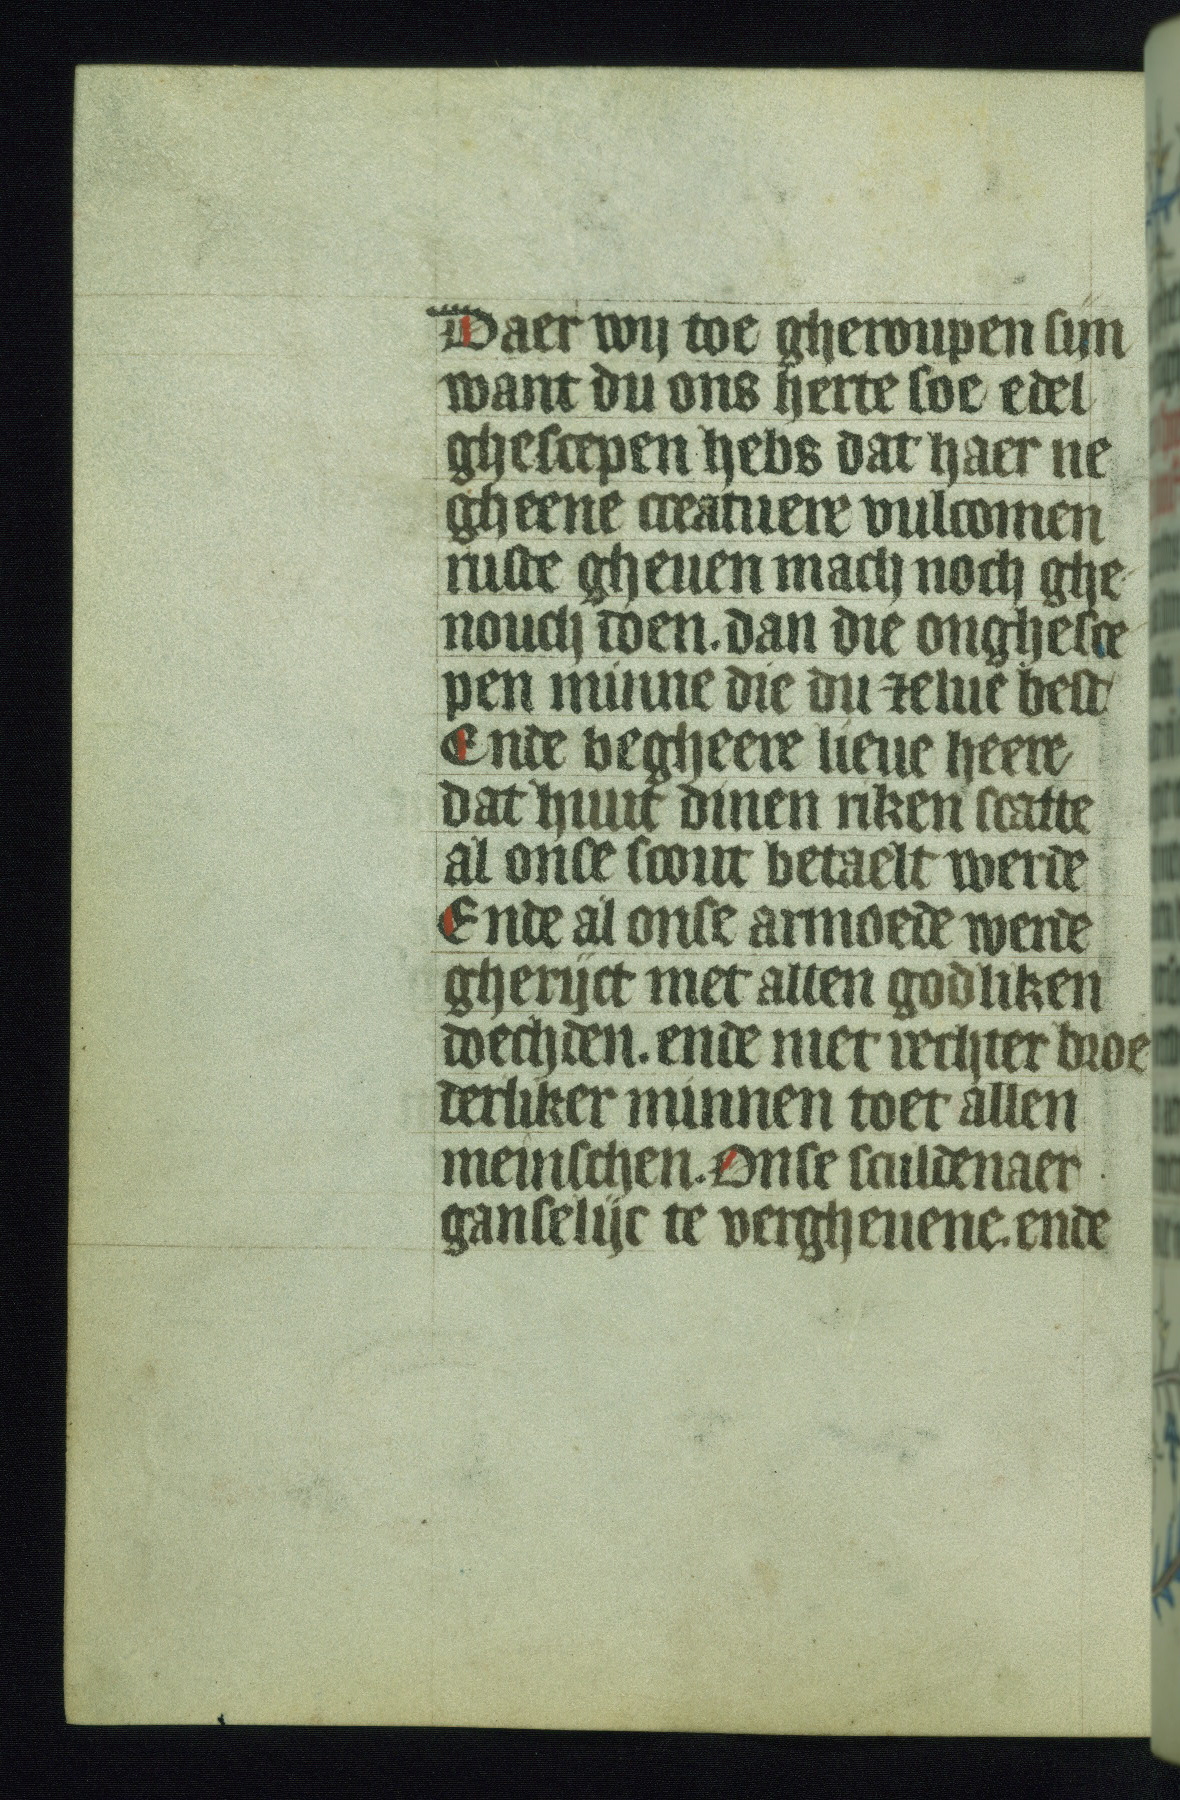 Daer wij toe gheroupen sijn
want du ons herte soe edel
ghescepen hebs dat haer ne
gheene creatuere vulcomen
ruste gheuen mach noch ghe
nouch doen. dan die onghesce
pen minne die du zelue best
Ende begheere lieue heere
dat huut dinen riken scatte
al onse scout betaelt werde
Ende al onse armoede werde
gherijct met allen godliken
doechden. ende met rechter broe
derliker minnen toet allen
meinschen. Onse sculdenaer
ganselijc te vergheuene. ende